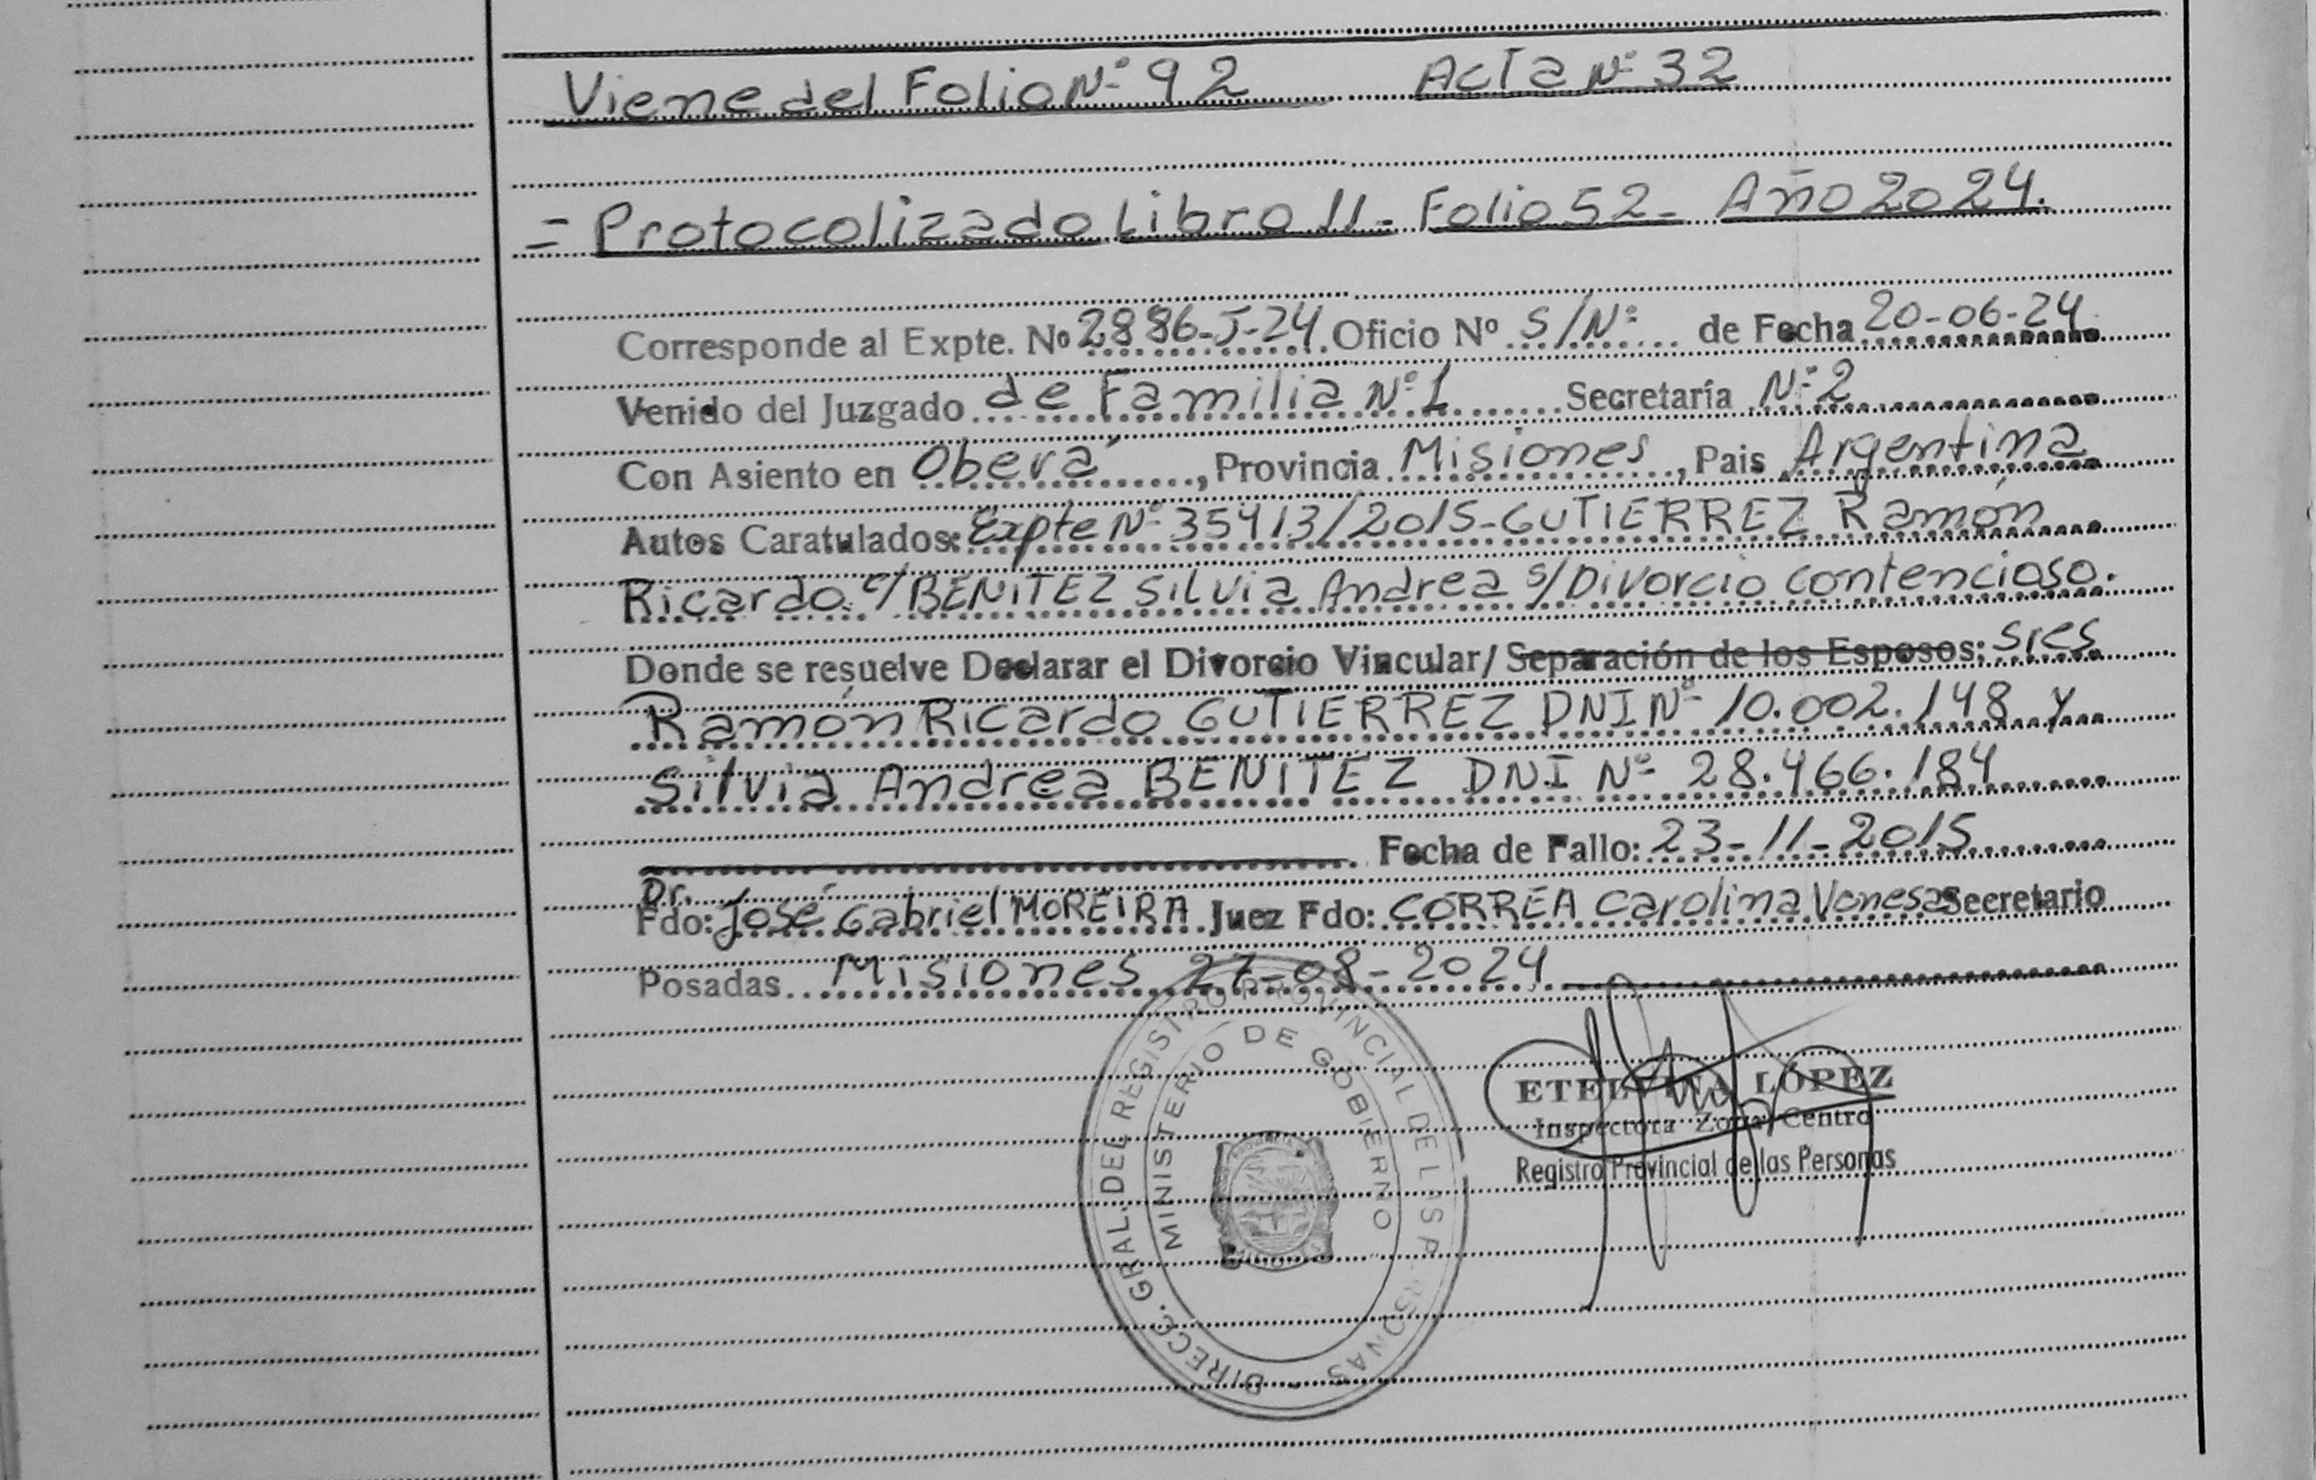 Viene del Folio Nº 92 Acta Nº 32
= Protocolizado Libro 11 - Folio 52 - Año 2024.
Corresponde al Expte. Nº 2886-J-24 Oficio Nº S/Nº de Fecha 20-06-24
Venido del Juzgado de Familia Nº 1 Secretaría Nº 2
Con Asiento en Oberá, Provincia Misiones, Pais Argentina
Autos Caratulados: Expte Nº 35413/2015-GUTIERREZ Ramón
Ricardo c/ BENITEZ Silvia Andrea s/ Divorcio contencioso.
Donde se resuelve Declarar el Divorcio Vincular/ Separación de los Esposos: Sres
Ramón Ricardo GUTIERREZ DNI Nº 10.002.148 y
Silvia Andrea BENITEZ DNI Nº 28.466.184
Fecha de Fallo: 23-11-2015
Dr.
Fdo: José Gabriel MOREIRA Juez Fdo: CORREA Carolina Vanesa Secretario
Posadas Misiones 27-08-2024
DIRECC. GRAL. DEL REGISTRO PROVINCIAL DE LAS PERSONAS -
MINISTERIO DE GOBIERNO
ETELVINA LÓPEZ
Inspectora Zona Centro
Registro Provincial de las Personas